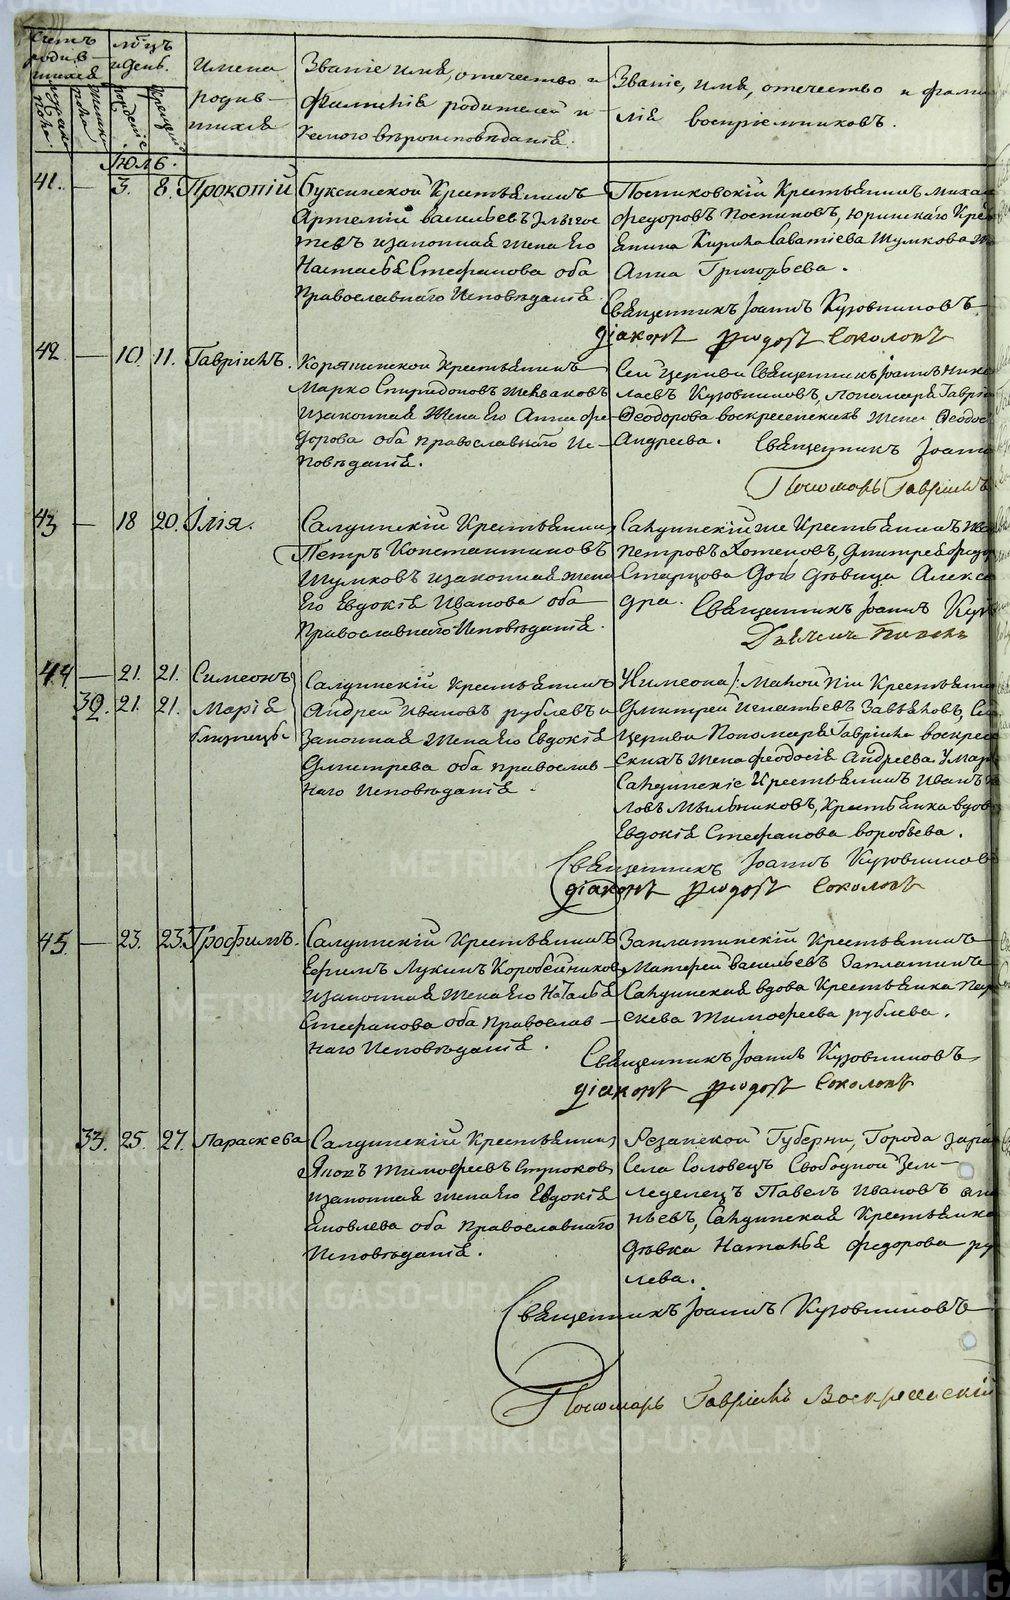 Счетъ родив-шихся
Мѣсцъ и день.
Имена родив-шихся
Званіе имя, отечество и
фамилія родителей и
коего вѣроисповѣданія.
Званіе, имя, отечество и фами
лія воспріемниковъ.
мужеска пола.
женска пола
рожденіе
крещеніе
Іюль.
41. — 3. 8. Прокопій
Буксинской Крестьянинъ
Артемій Васильевъ
изаконная жена его
Настасья Стефанова оба
Православнаго Исповѣданія
Постниковскій Крестьянинъ Миха
Федоровъ Постниковъ, Юринскаго Кре
янина Кирила Саватіева Шумкова ж
Анна Григорьева.
Священникъ Іоаннъ Кузовниковъ
Діаконъ Соколовъ
42. — 10. 11. Гавріилъ.
Корятинской Крестьянинъ
Марко Спиридоновъ
изаконная жена его Анна Фе-
дорова оба православнаго Ис-
повѣданія.
Сей Церкви Священникъ Іоаннъ Нико
лаевъ Кузовниковъ, пономаря Гаврі
Феодорова воскресенскихъ жена Феодос
Андреева. Священникъ Іоанн
Пономарь Гавріилъ
43 — 18 20. Илія.
Салдинскій Крестьянинъ
Петръ Константиновъ
Шумковъ изаконная жена
его Евдокія Иванова оба
Православнаго Исповѣданія.
Салдинскій же Крестьянинъ Ив
Петровъ Хотеновъ, Дмитрея Федор
Старцова дочь дѣвица Алекса
дра. Священникъ Іоаннъ Куз
44. — 21. 21. Симеонъ
32. 21. 21. Марія
близнецы
Салдинскій Крестьянинъ
Андрей Ивановъ рублевъ и
законная жена его Евдокія
Дмитрева оба православ-
наго Исповѣданія.
У Симеона Крестьянин
Дмитрей Игнатьевъ Завьяловъ, Сей
церкви Пономаря Гавріила воскресе
скихъ жена феодосія Андреева. У Марі
Салдинскіе Крестьянинъ Иванъ
ловъ Мыльниковъ, Крестьянка вдов
Евдокія Стефанова воробьева.
Священникъ Іоаннъ Кузовников
діаконъ Соколовъ
45. — 23. 23. Трофимъ.
Салдинскій Крестьянинъ
Ефимъ Лукинъ Коробейников
изаконная жена его Наталья
Стефанова оба православ-
наго Исповѣданія.
Заплатинскій Крестьянинъ
Матфей Васильевъ Заплатинъ
Салдинская вдова Крестьянка Пар
скева Тимофеева рублева.
Священникъ Іоаннъ Кузовниковъ
діаконъ Соколовъ
33. 25. 27. Параскева
Салдинскій Крестьянин
Яковъ Тимофеевъ Стрюков
изаконная жена его Евдокія
Яковлева оба православнаго
Исповѣданія.
Резанской Губерни, Города Зара
Села Соловецъ Свободной Зем-
леделецъ Павелъ Ивановъ
ньевъ, Салдинская Крестьянка
дѣвка Наталья федорова ру
лева.
Священникъ Іоаннъ Кузовниковъ
Пономарь Гавріилъ Воскресенскій
METRIKI.GASO-URAL.RU